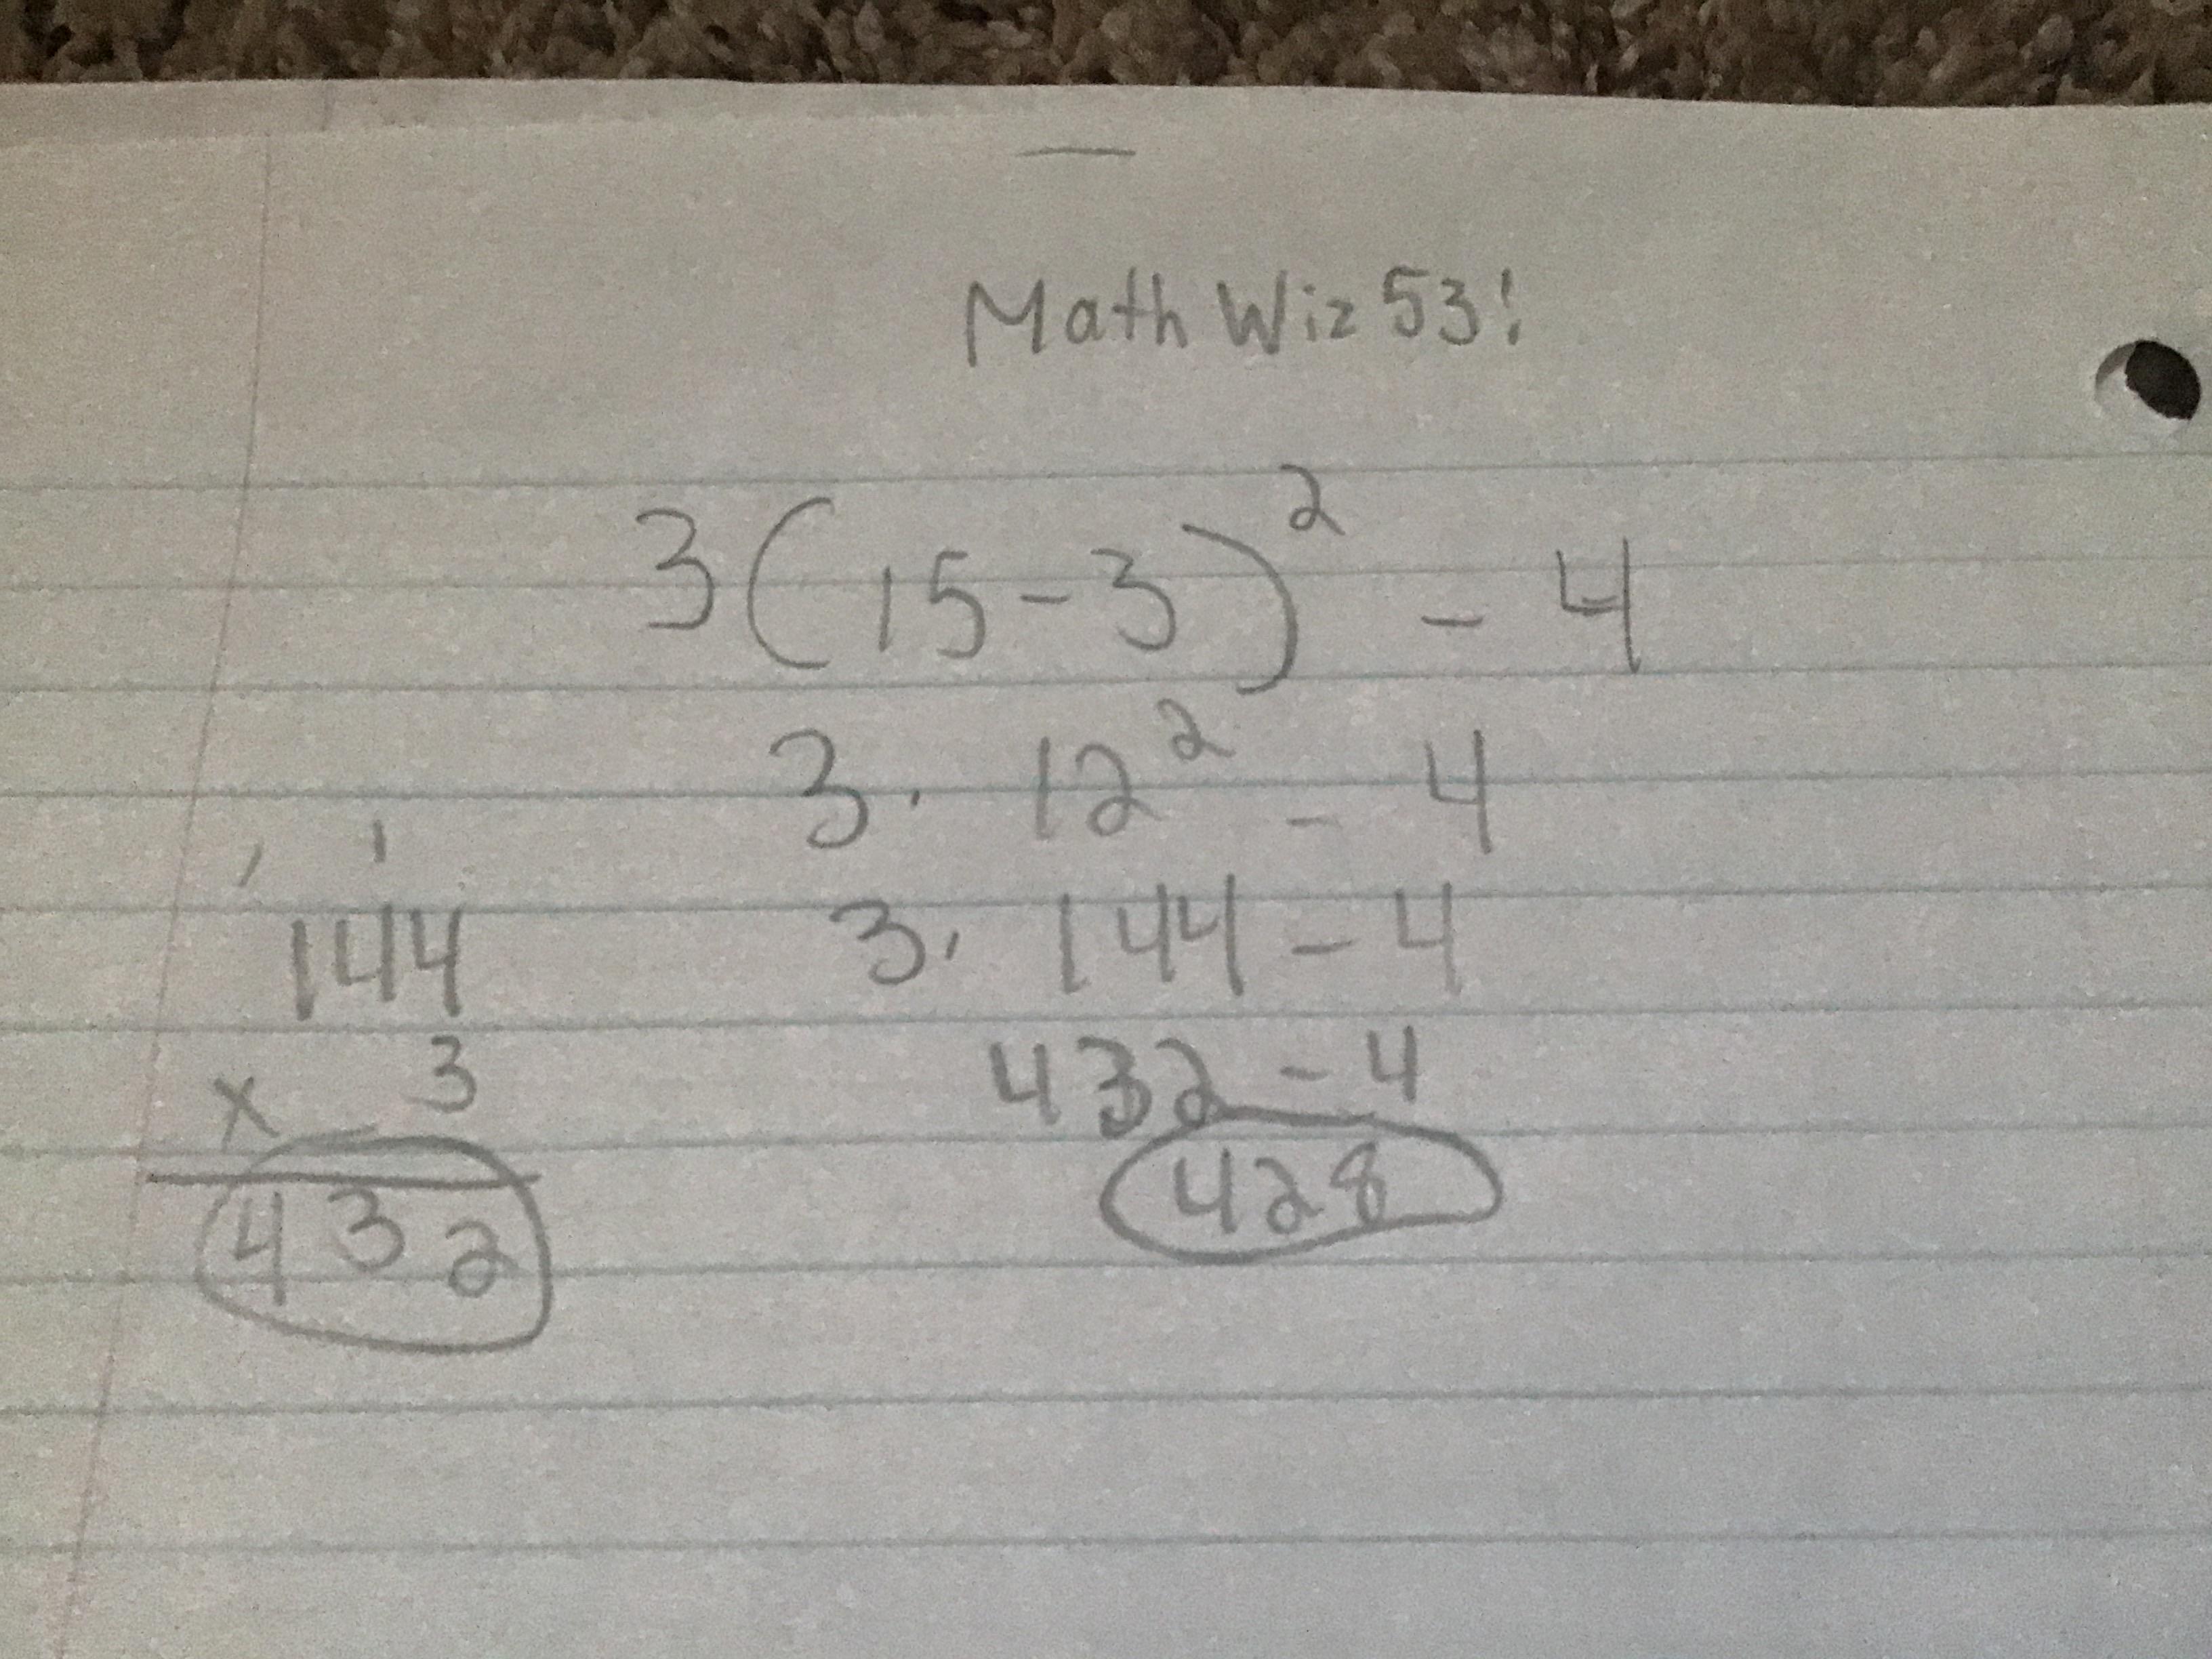 Math Wiz 53!
3(15-3)² - 4
3 · 12² - 4
3 · 144 - 4
432 - 4
428
1 1
144
x 3
432